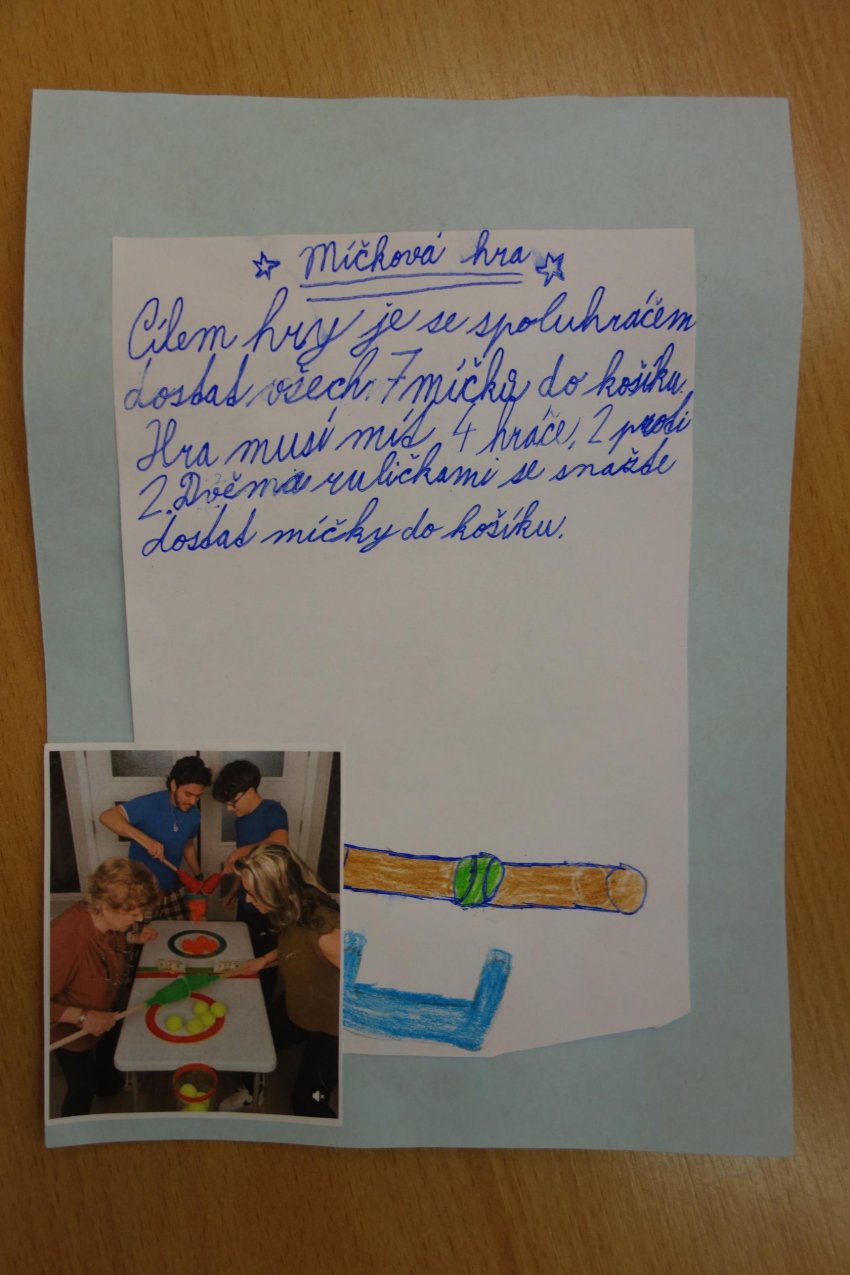 Míčková hra
Cílem hry je se spoluhráčem
dostat všech 7 míčků do košíku.
Hra musí mít 4 hráče, 2 proti
2. Dvěma ruličkami se snažte
dostat míčky do košíku.